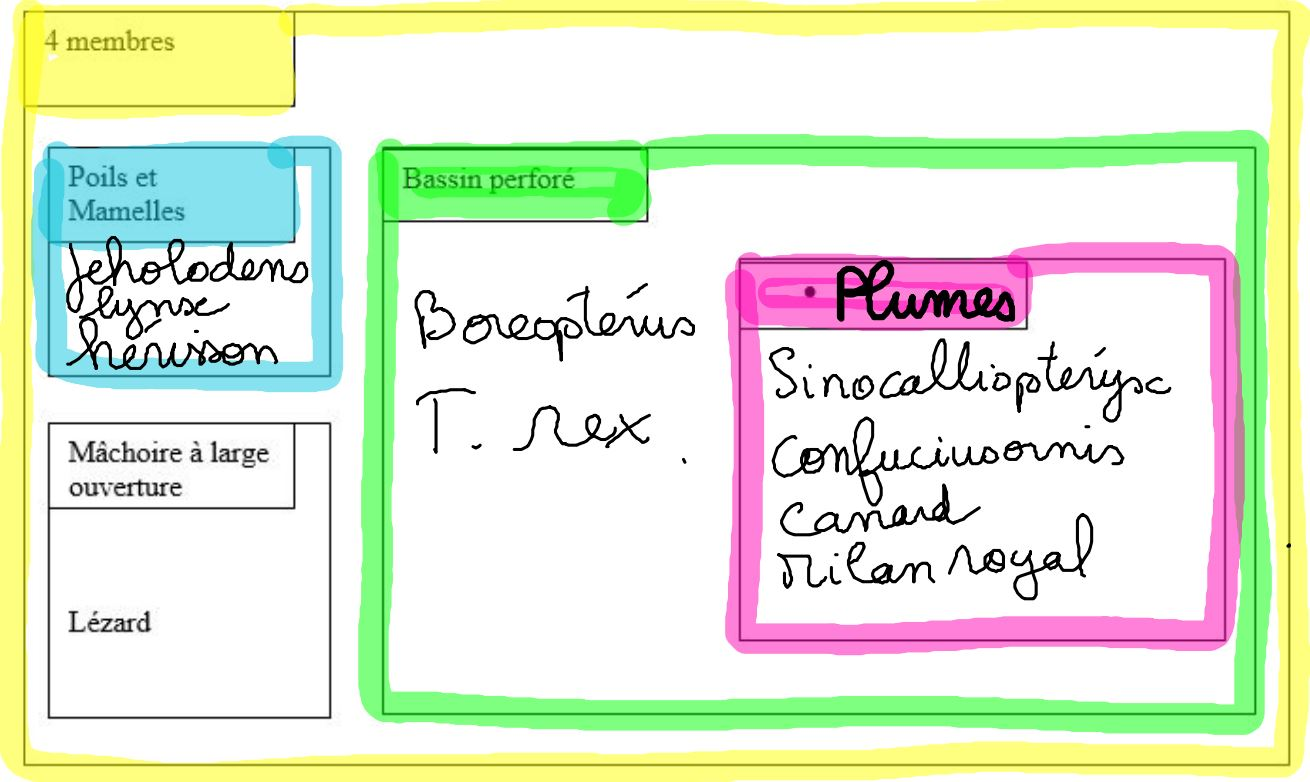 4 membres
Poils et
Mamelles
Jeholodens
lynx
hérisson
Mâchoire à large
ouverture
Lézard
Bassin perforé
Boreoptérus
T. rex.
• Plumes
Sinocallioptéryx
Confuciusornis
canard
Milan royal